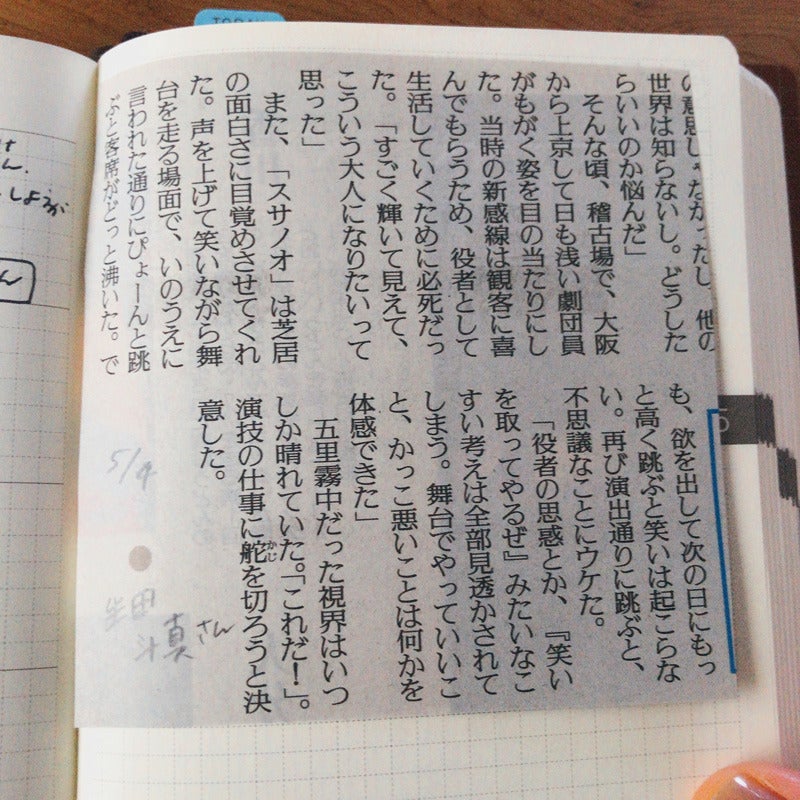 TODAY
の意思じゃなかったし、他の
世界は知らないし。どうした
らいいのか悩んだ」
そんな頃、稽古場で、大阪
から上京して日も浅い劇団員
がもがく姿を目の当たりにし
た。当時の新感線は観客に喜
んでもらうため、役者として
生活していくために必死だっ
た。「すごく輝いて見えて、
こういう大人になりたいって
思った」
また、「スサノオ」は芝居
の面白さに目覚めさせてくれ
た。声を上げて笑いながら舞
台を走る場面で、いのうえに
言われた通りにぴょーんと跳
ぶと客席がどっと沸いた。で
も、欲を出して次の日にもっ
と高く跳ぶと笑いは起こらな
い。再び演出通りに跳ぶと、
不思議なことにウケた。
「役者の思惑とか、『笑い
を取ってやるぜ』みたいなこ
すい考えは全部見透かされて
しまう。舞台でやっていいこ
と、かっこ悪いことは何かを
体感できた」
五里霧中だった視界はいつ
しか晴れていた。「これだ！」。
演技の仕事に舵を切ろうと決
かじ
意した。
5/4
生田
斗真さん
5